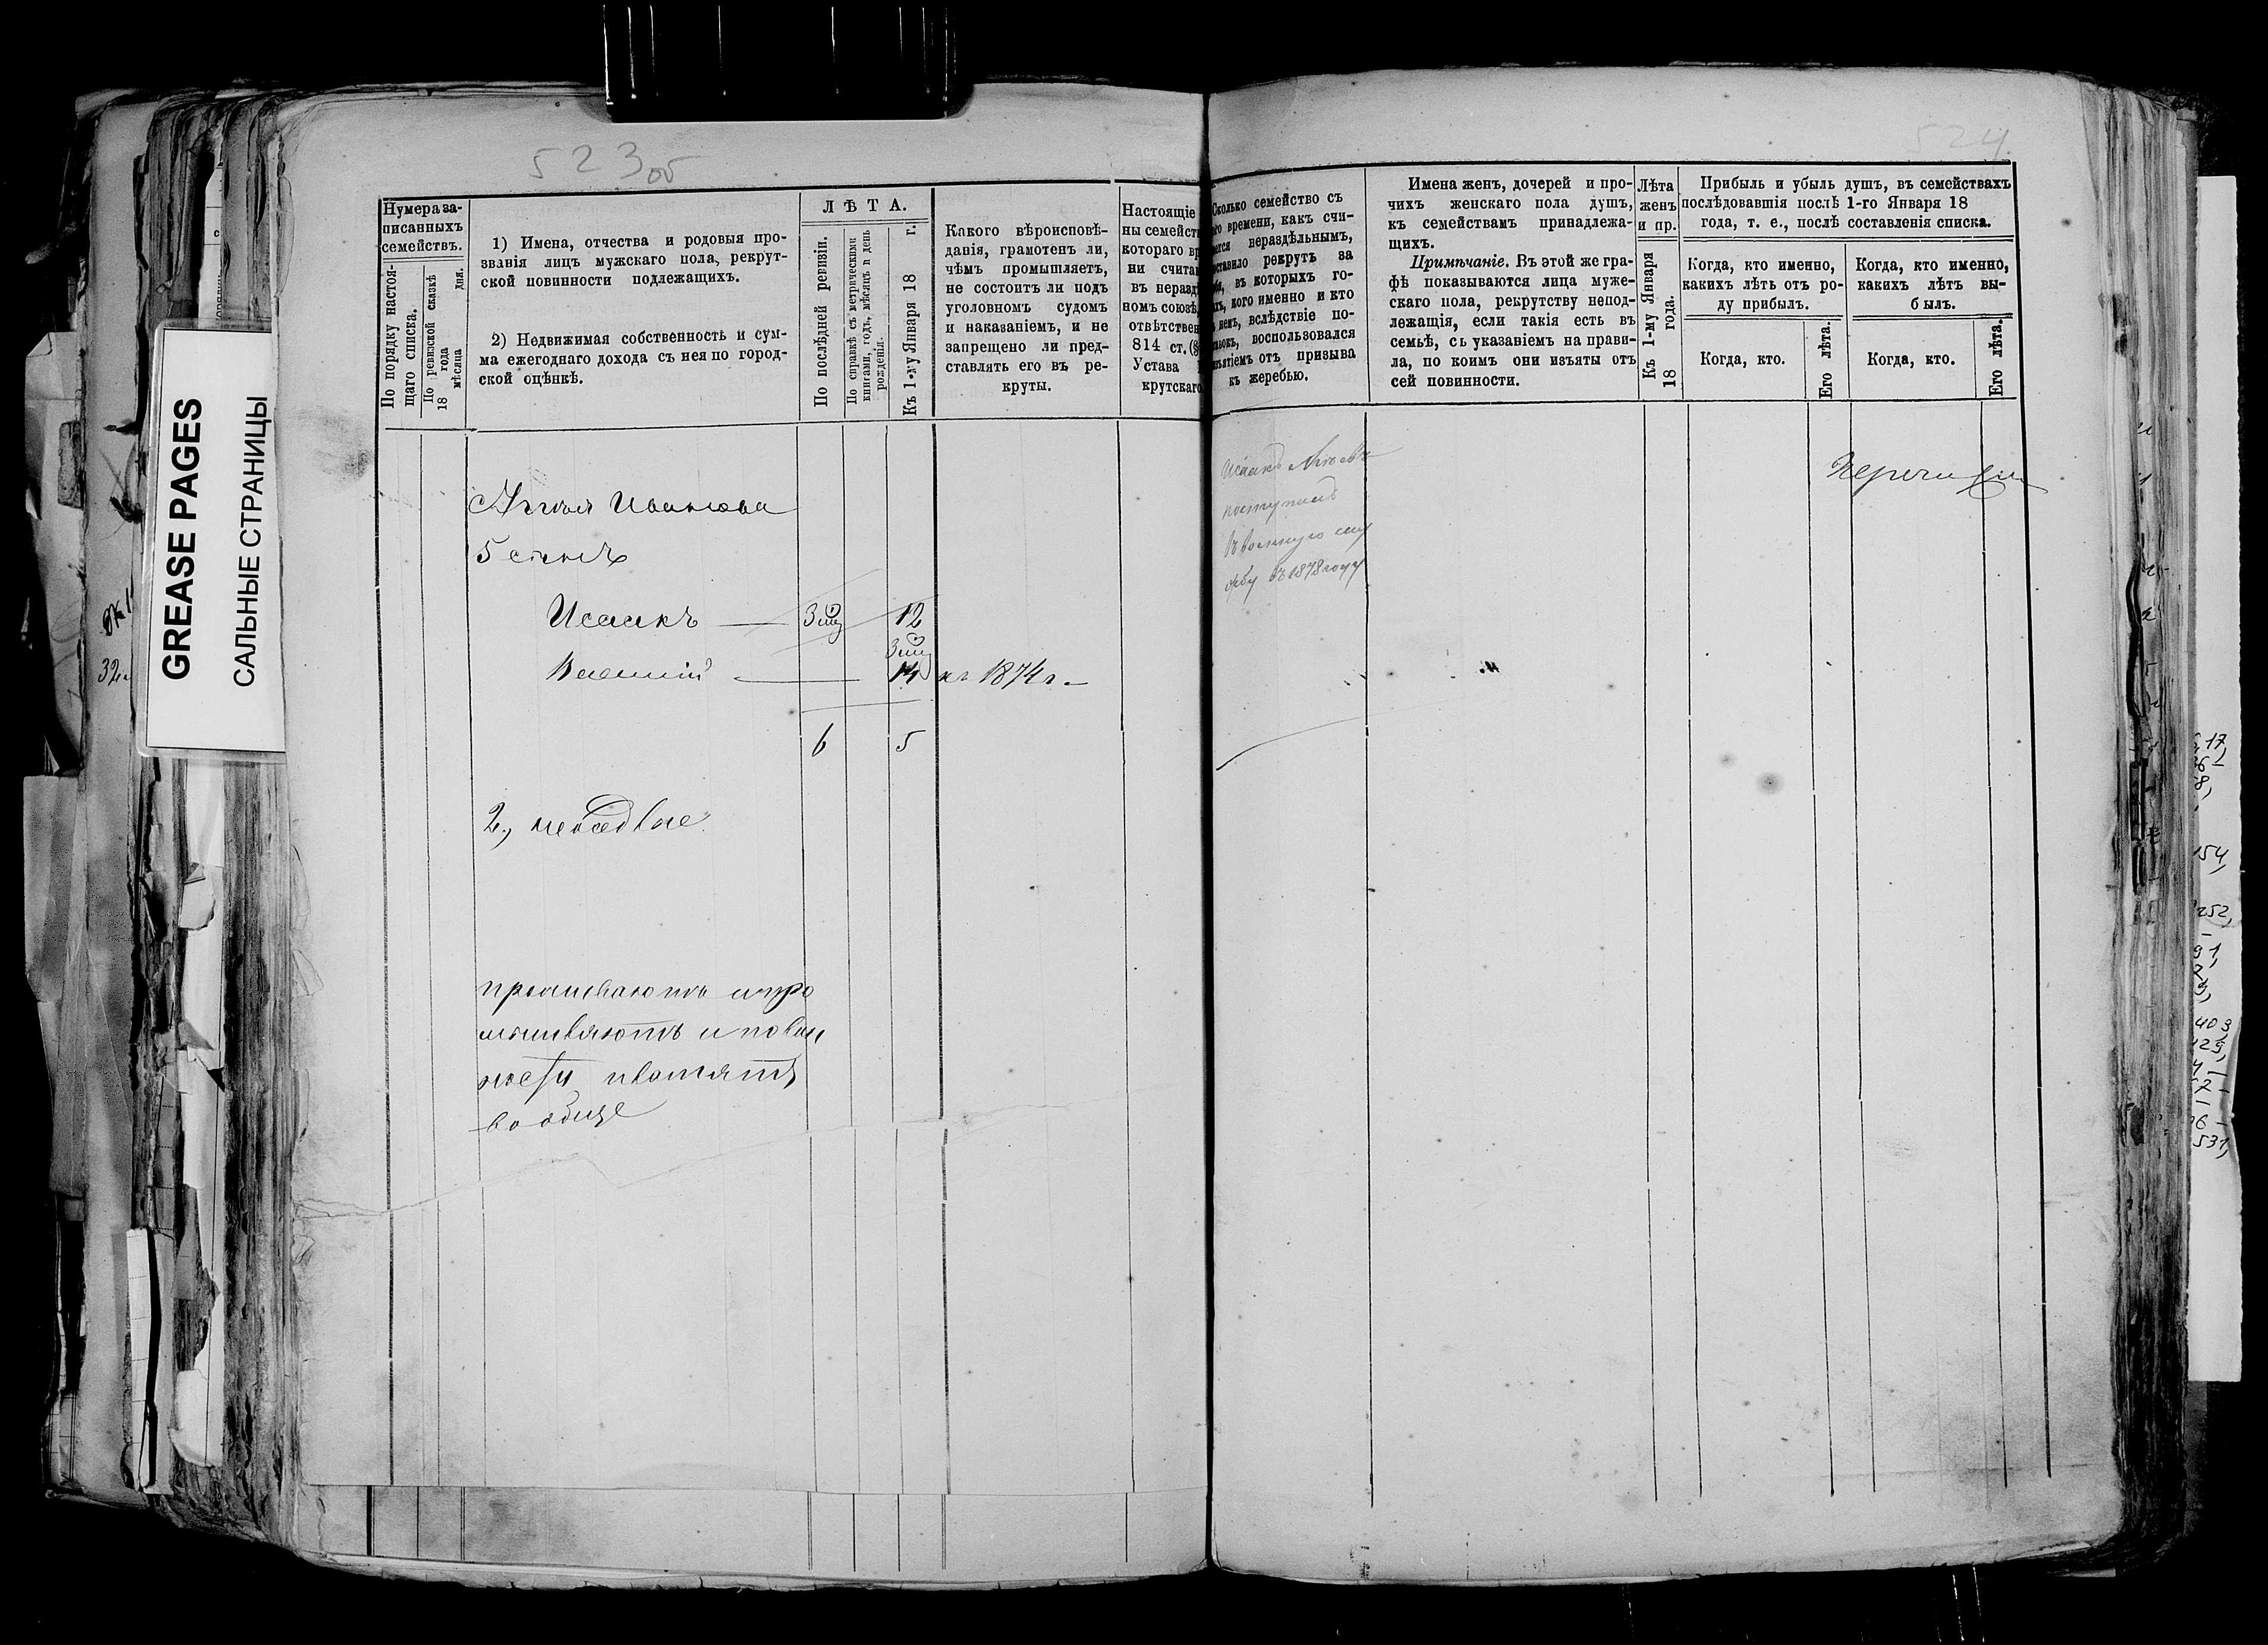 523 об
524
GREASE PAGES
САЛЬНЫЕ СТРАНИЦЫ
Нумера за-
писанныхъ
семействъ.
По порядку настоя-
щаго списка.
По ревизской сказкѣ
18 года
мѣсяца дня.
1) Имена, отчества и родовыя про-
званія лицъ мужскаго пола, рекрут-
ской повинности подлежащихъ.
2) Недвижимая собственность и сум-
ма ежегоднаго дохода съ нея по город-
ской оцѣнкѣ.
ЛѢТА.
По послѣдней ревизіи.
По справкѣ съ метрическими
книгами, годъ, мѣсяцъ и день
рожденія.
Къ 1-му Января 18 г.
Какого вѣроисповѣ-
данія, грамотенъ ли,
чѣмъ промышляетъ,
не состоитъ ли подъ
уголовномъ судомъ
и наказаніемъ, и не
запрещено ли пред-
ставлять его въ ре-
круты.
Настоящіе
ны семейст
котораго вр
ни счита
въ неразд
номъ союзѣ,
отвѣтствен
814 ст. (§
Устава
крутскаго
Сколько семейство съ
времени, какъ счи-
тается нераздѣльнымъ,
оставило рекрутъ за
въ которыхъ го-
кого именно и кто
нихъ, вслѣдствіе по-
воспользовался
изъятіемъ отъ призыва
къ жеребью.
Имена женъ, дочерей и про-
чихъ женскаго пола душъ,
къ семействамъ принадлежа-
щихъ.
Примѣчаніе. Въ этой же гра-
фѣ показываются лица муже-
скаго пола, рекрутству непод-
лежащія, если такія есть въ
семьѣ, съ указаніемъ на прави-
ла, по коимъ они изъяты отъ
сей повинности.
Лѣта
женъ
и пр.
Къ 1-му Января
18 года.
Прибыль и убыль душъ, въ семействахъ
послѣдовавшія послѣ 1-го Января 18
года, т. е., послѣ составленія списка.
Когда, кто именно,
какихъ лѣтъ отъ ро-
ду прибылъ.
Когда, кто.
Его лѣта.
Когда, кто именно,
какихъ лѣтъ вы-
былъ.
Когда, кто.
Его лѣта.
Ивановa
5 сынъ
Исаакъ 12
Василій 14 къ 1874 г.
6 5
2,
проживаютъ и про
мышляютъ и повин
ности платятъ
вообще
Исаакъ
поступилъ
въ военную слу
жбу въ 1878 году